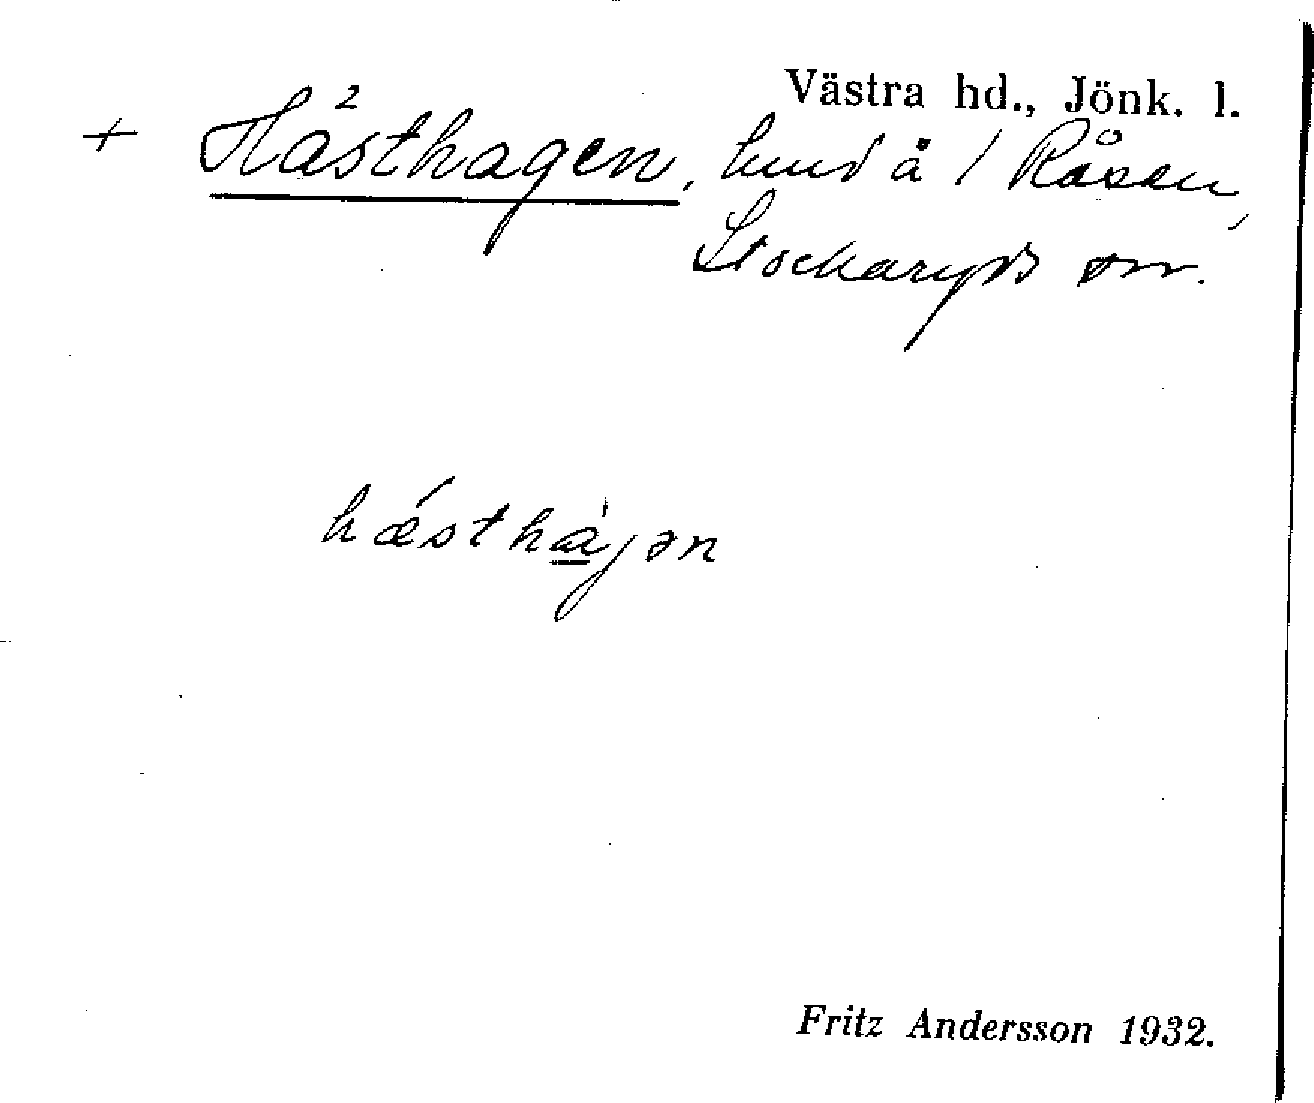 Västra hd., Jönk. l.
+ Hästhagen, lund å / Råsen,
Stockaryds sn.
hǽsthàjən
Fritz Andersson 1932.